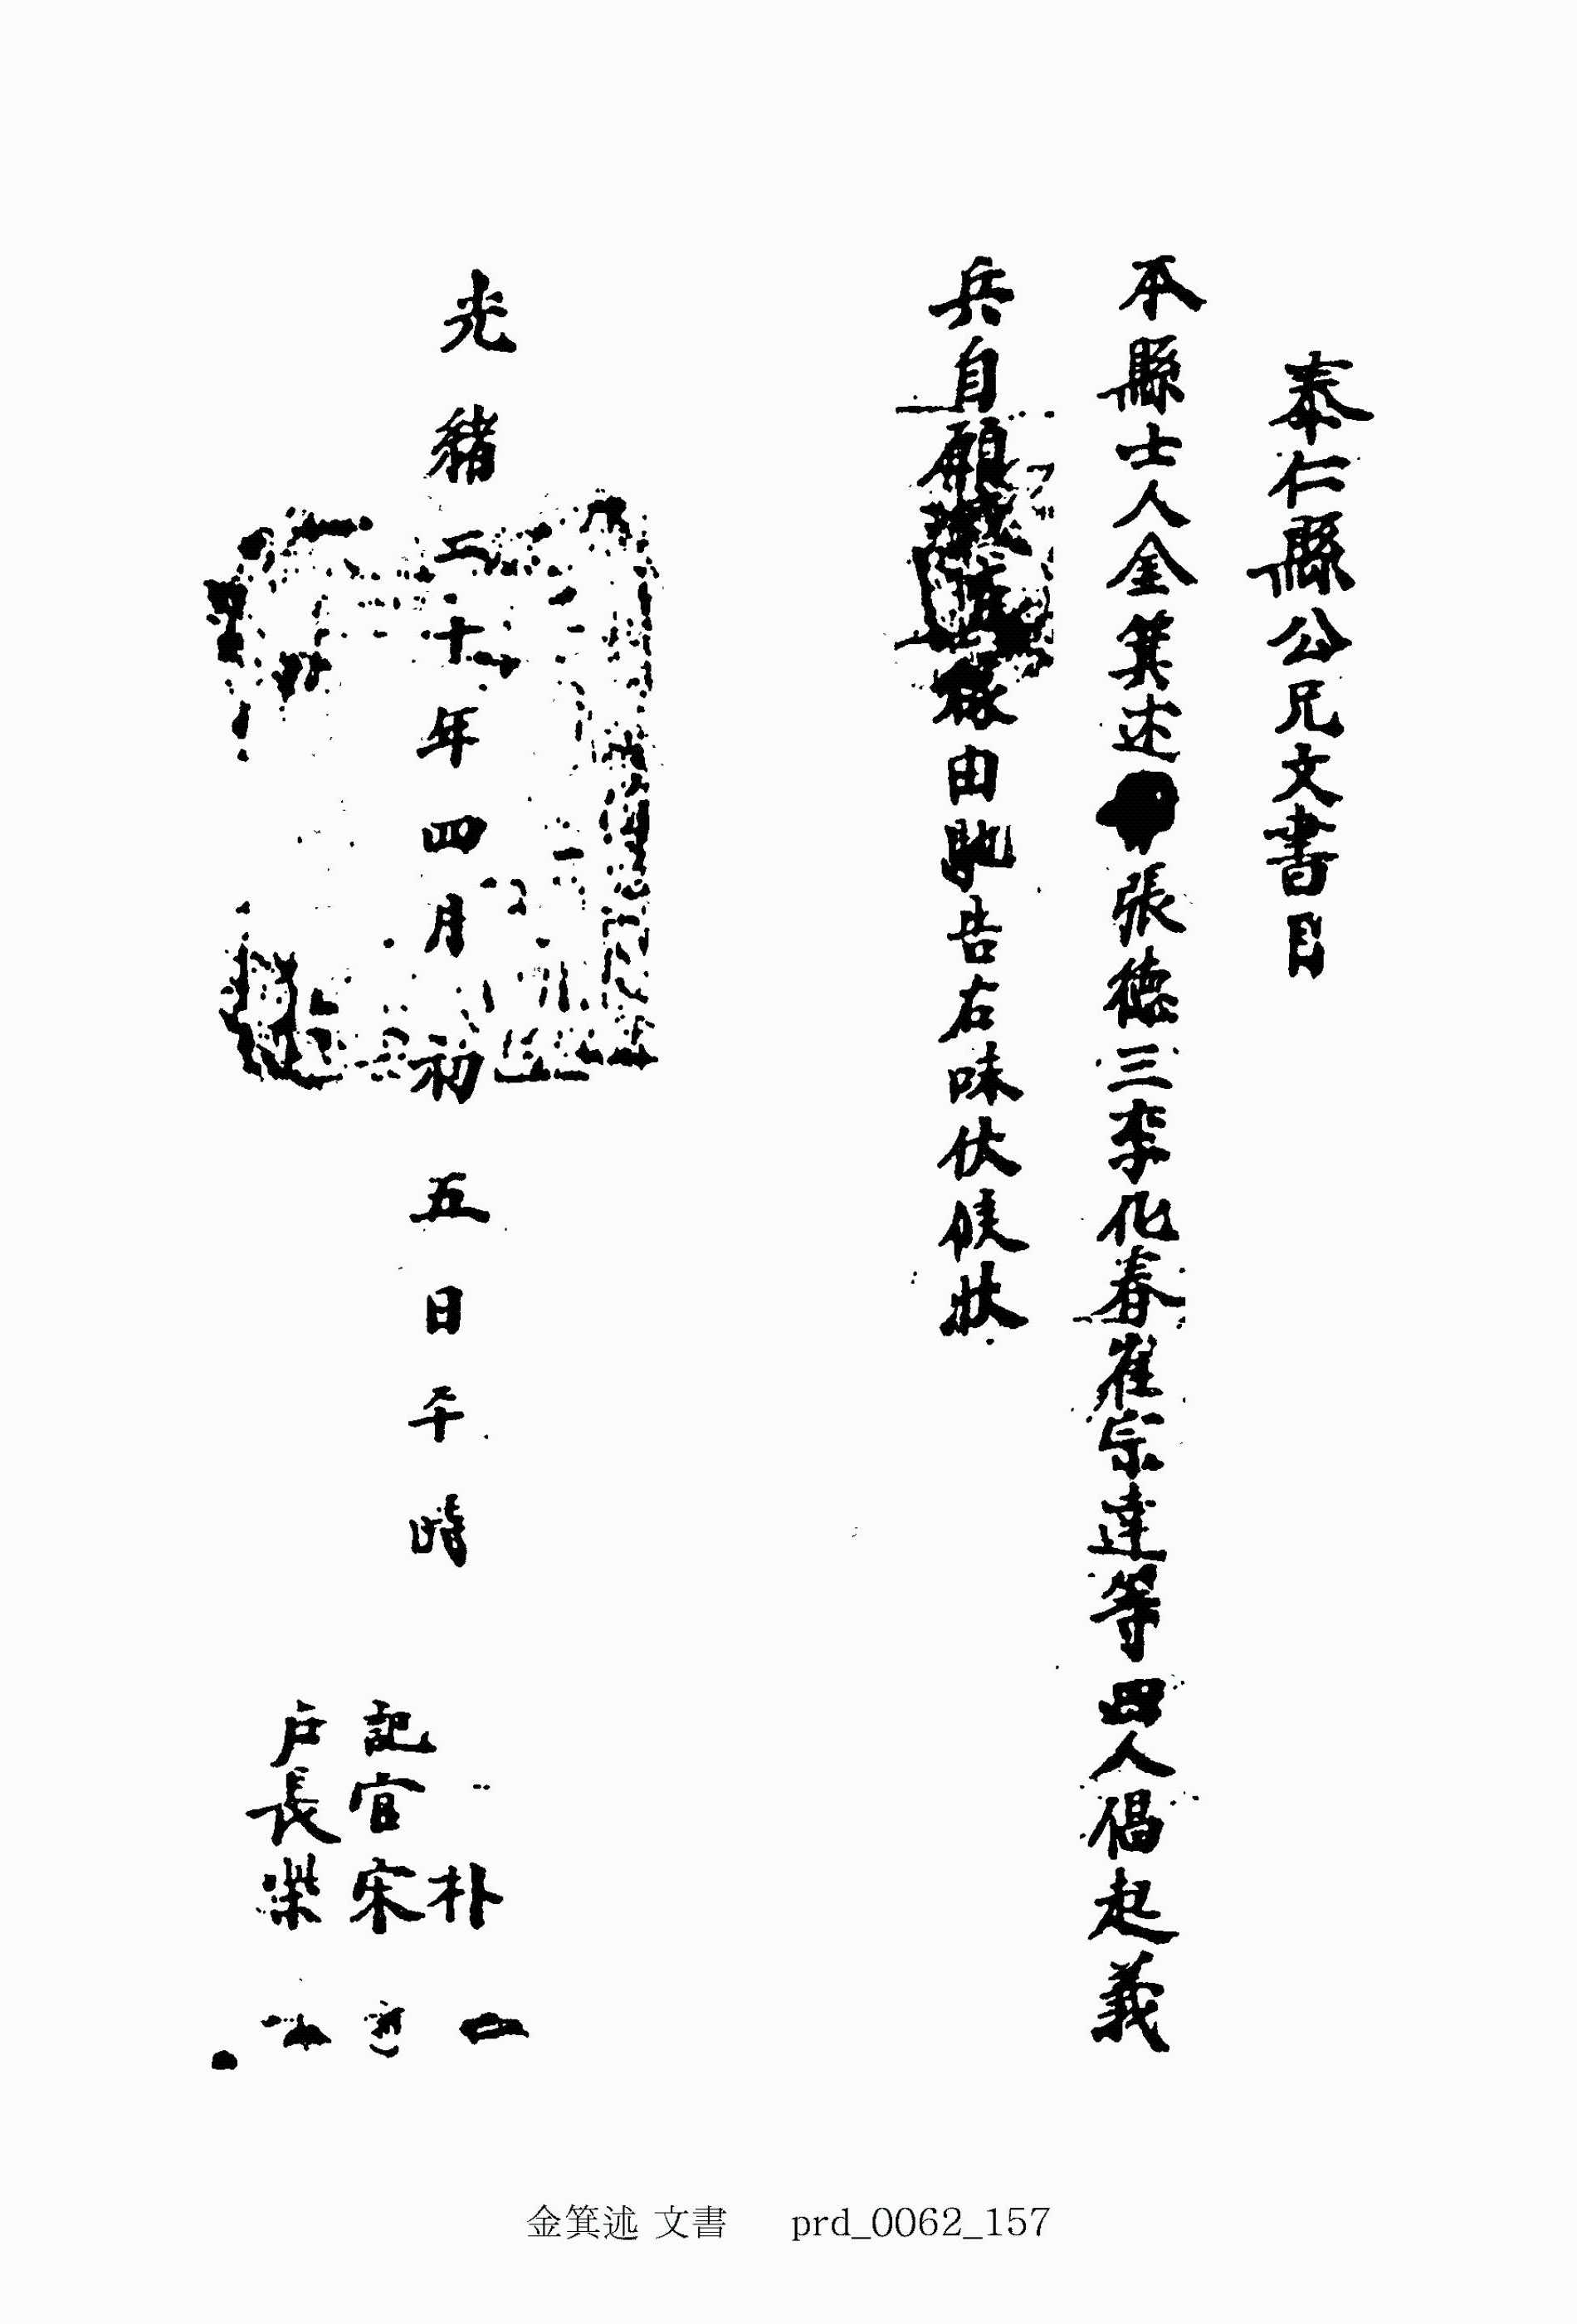 泰仁縣公兄文書目
本縣士人金箕述張德三李化春崔宗達等四人倡起義
兵自願緣由馳告右味伏候狀
光緖二十年四月初五日午時
記官宋
朴
戶長梁
金箕述 文書 prd_0062_157